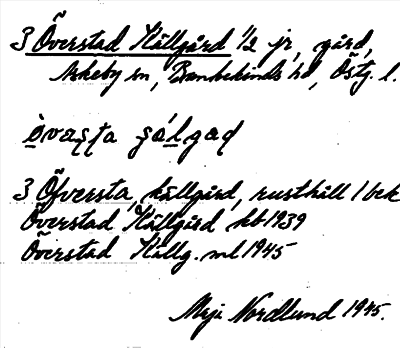 3 Överstad Källgård 1/2 jr, gård,
Askeby sn, Bankekinds hd, Östg. l.
òvaʂʈa ʂálgaɖ
3 Öfversta, källgård, rusthåll 1 bek
Överstad Källgård kb 1939
Överstad Källg. ml 1945
Nordlund 1945.